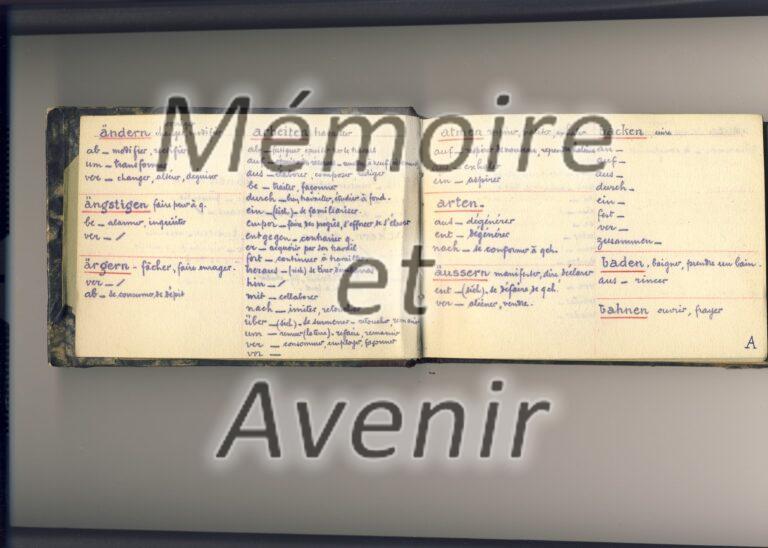 Mémoire
et
Avenir
ändern
ab — modifier, rectifier
um — transformer
ver — changer, altérer, déguiser
ängstigen faire peur à q.
be — alarmer, inquiéter
ver —
ärgern — fâcher, faire enrager.
ver —
ab — se consumer de dépit
arbeiten travailler
aus — élaborer, composer, rédiger
be — traiter, façonner
durch — travailler, étudier à fond.
ein — (sich) — se familiariser
empor — faire des progrès, s'efforcer de s'élever
entgegen — contrarier q.
er — acquérir par son travail
fort — continuer à travailler
heraus — (sich) se tirer
hin —
mit — collaborer
nach — imiter, retoucher
über — (sich) — se surmener — retoucher, remanier
um — remuer (la terre), refaire, remanier
ver — consommer, employer, façonner
vor —
atmen
auf — respirer de nouveau, reprendre haleine
exhaler
ein — aspirer
arten —
aus — dégénérer
ent — dégénérer
nach — se conformer à qch.
äussern manifester, dire, déclarer
ent — (sich) — se défaire de qch.
ver — aliéner, vendre.
backen cuire
an —
auf —
aus —
durch —
ein —
fort —
ver —
zusammen —
baden, baigner, prendre un bain.
aus — rincer
bahnen ouvrir, frayer
A